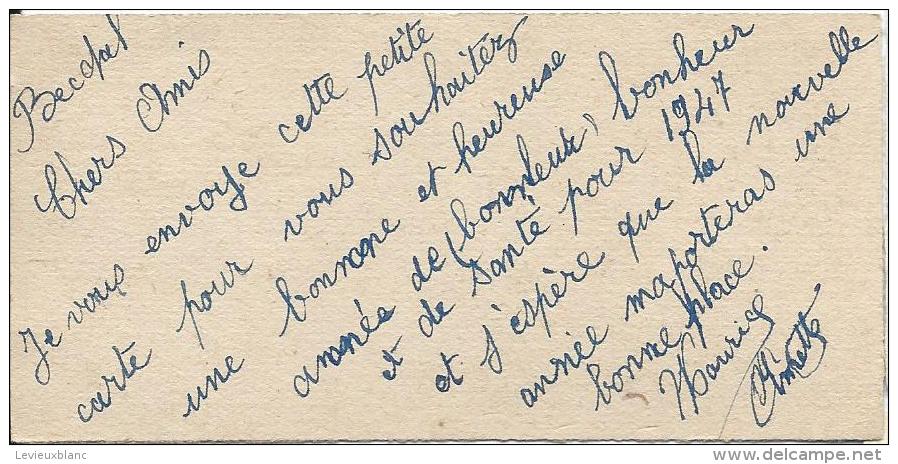 Chers Amis
Je vous envoye cette petite
carte pour vous souhaiter
une bonnone et heureuse
année de (bonheur) bonheur
et de Santé pour 1947
et j'espère que la nouvelle
année maporteras une
bonne place.
Maurice
Levieuxblanc
delcampe.net